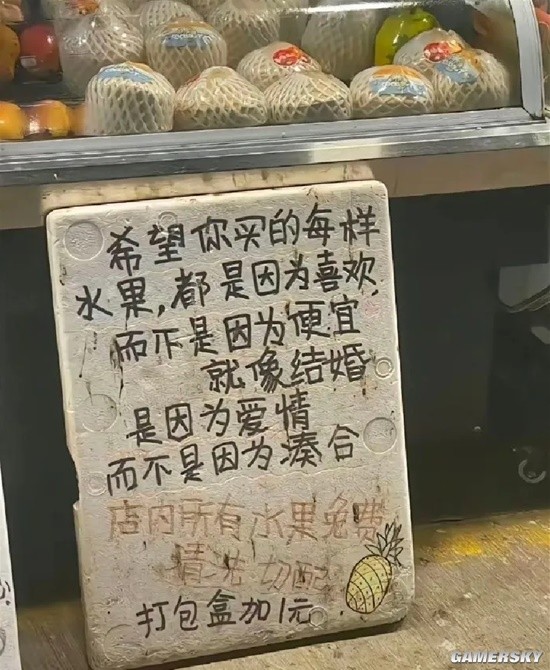 希望你买的每样
水果,都是因为喜欢,
而不是因为便宜
就像结婚
是因为爱情
而不是因为凑合
店内所有水果免费
清洗切配
打包盒加1元
GAMERSKY